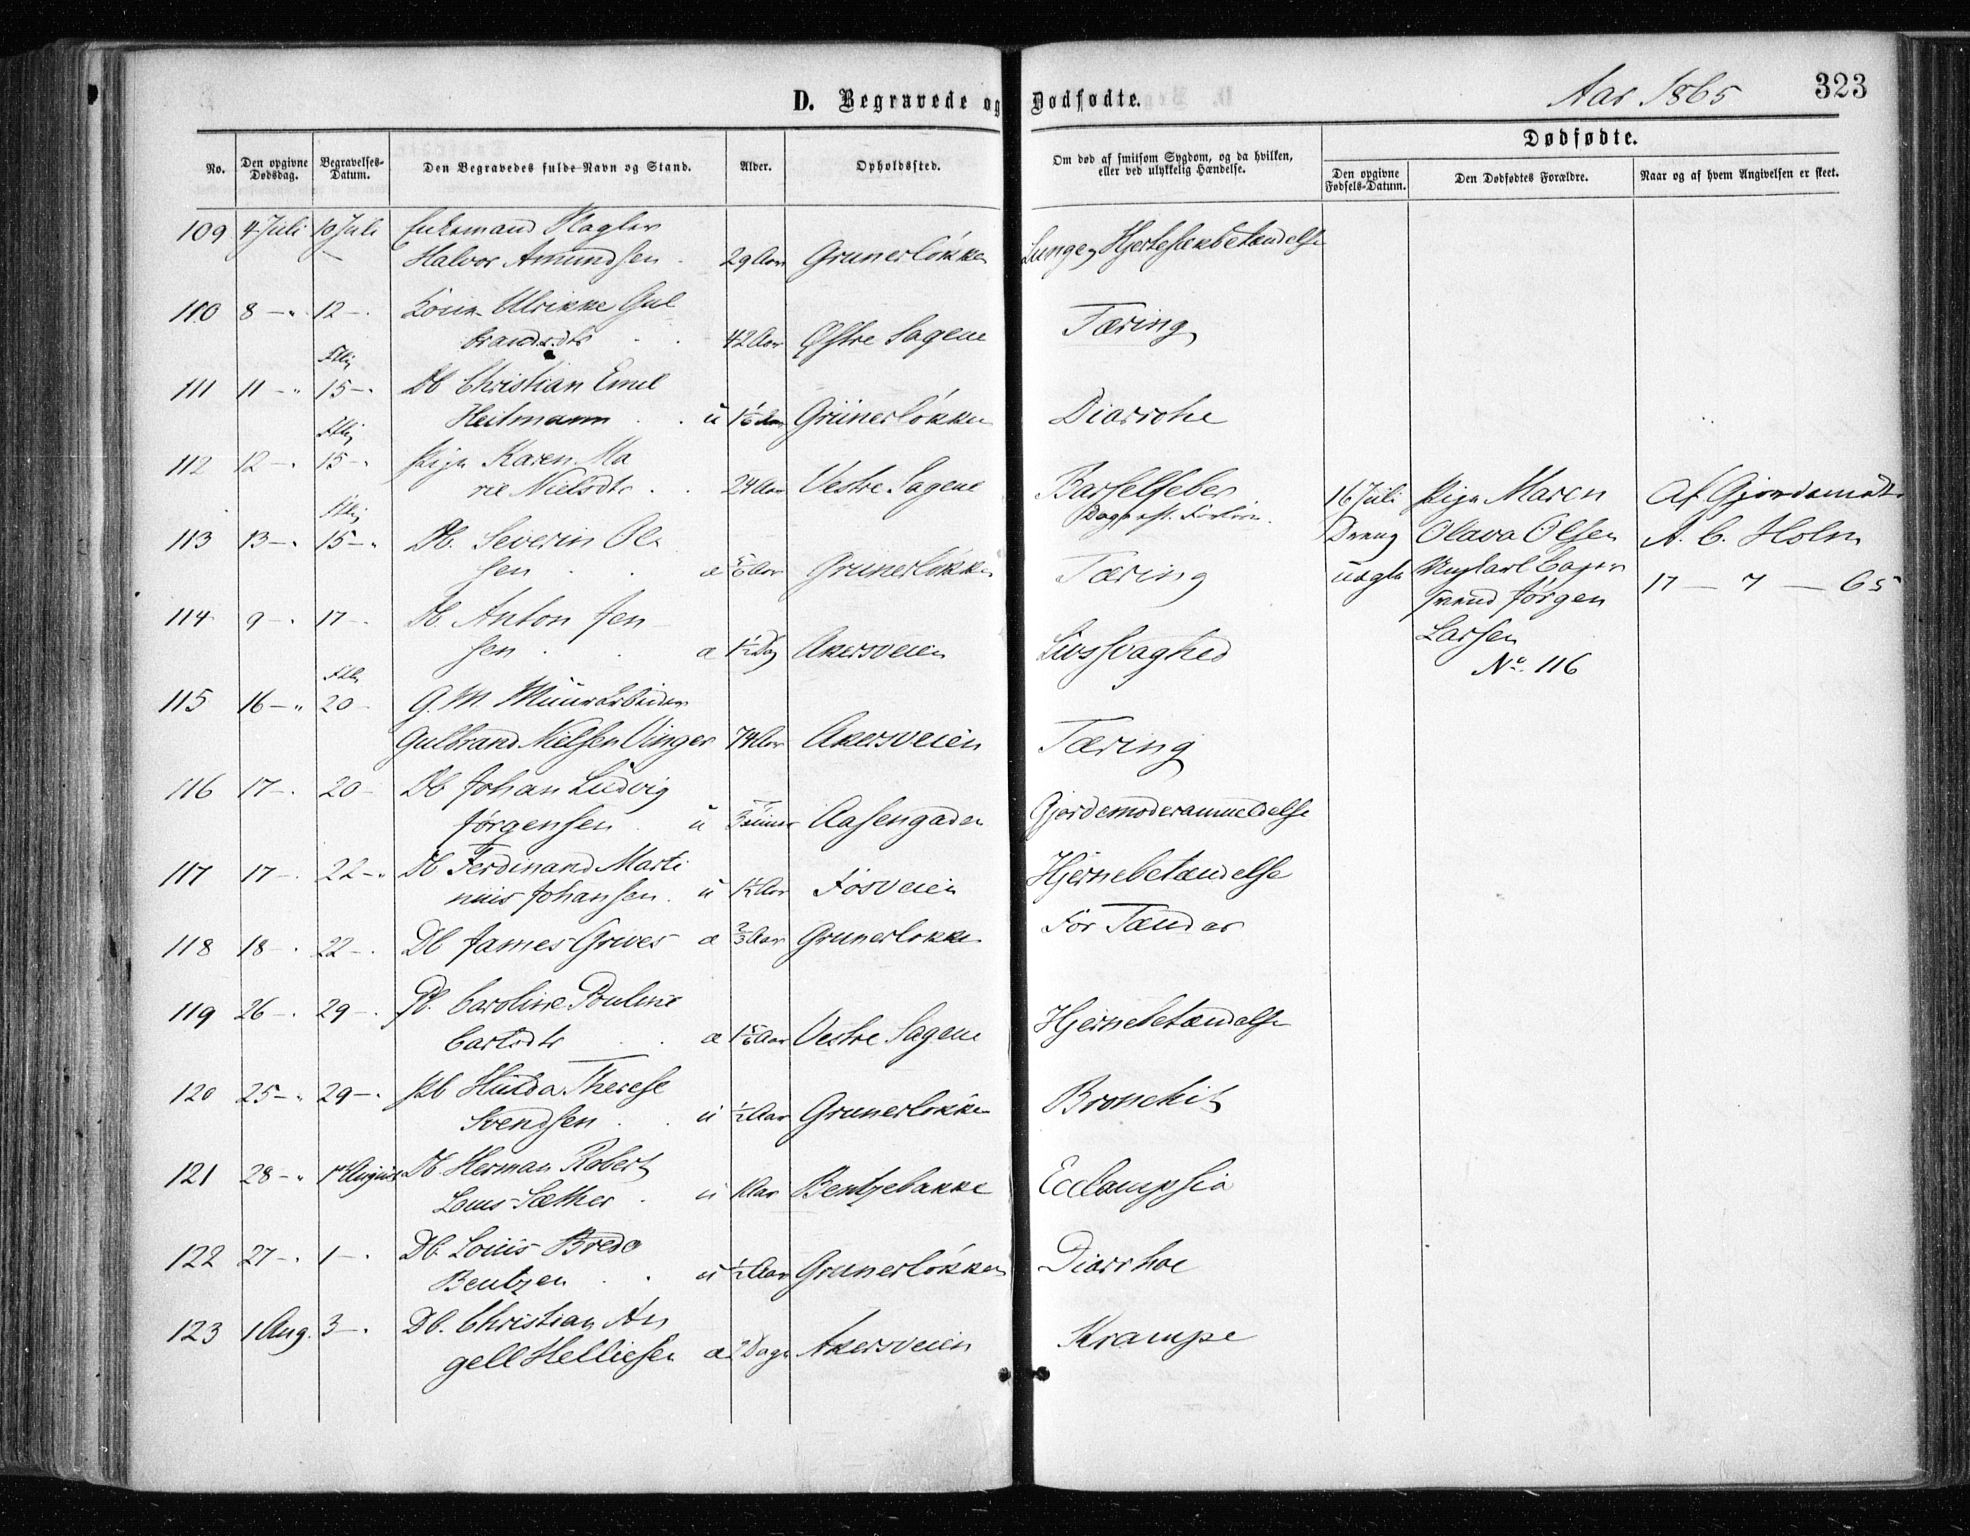 D. Begravede og Dødfødte.
Aar 1865
323
No.
Den opgivne Dødsdag.
Begravelses-Datum.
Den Begravedes fulde Navn og Stand.
Alder.
Opholdssted.
Om død af smitsom Sygdom, og da hvilken, eller ved ulykkelig Hændelse.
Dødfødte.
Den opgivne Fødsels-Datum.
Den Dødfødtes Forældre.
Naar og af hvem Angivelsen er skeet.
109 4 Juli 10 Juli
Halvor Amundsen 29 Aar Grunerløkken Lunge og Hjertesækbetændelse
110 8 — " 12 — . Kone Ulrikke Gul
brandsdtr 42 Aar Østre Sagene Tæring
111 11 — " 15 — " Db Christian Emil
Heitmann u 1 1/6 Aar Grünerløkken Diarrohe
112 12 — " 15 — " Pige Karen Ma
rie Nielsdtr 24 Aar Vestre Sagene Barselfeber
113 13 — " 15 — " Db. Severin Ol
sen æ 5/6 Aar Grunerløkken Tæring
114 9 — " 17 — . Db Anton Jen
sen æ 1 1/2 Dag Akersveien Livssvaghed
115 16 — " 20 — G. M. Muurarbeider
Gulbrand Nielsen Vinger 74 Aar Akersveien Tæring
116 17 — . 20 — Db Johan Ludvig
Jørgensen u Aasengaden Gjordemoderanmeldelse
117 17 — . 22 — " Db Ferdinand Marti
nius Johansen u 1 1/2 Aar Fosveien Hjernebetændelse
118 18 — . 22 — . Db James Grives æ 2/3 Aar Grunerløkken For Tænder
119 26 — . 29 — . Pb. Caroline Pouline
Carlsdtr æ 1 5/6 Aar Vestre Sagene Hjernebetændelse
120 25 — " 29 — . Pb Hulda Therese
Svendsen u 1/2 Aar Grunerløkken Bronchit
121 28 — " 1 August Db. Herman Robert
Louis Sæther u 1 Aar Bentzebakke Ecclampsia
122 27 — . 1 — . Db. Louis Bredo
Bentzen u 1/2 Aar Grunerløkken Diarrhoe
123 1 Aug. 3 — . Db. Christian An
gell Helliesen æ 2 Dage Akersveien Krampe
16 Juli
Dreng
uægte
Pige Maren
Olava Olsen
Jørgen
Larsen
No. 116
Af Gjordemoder
A. C. Holm
17 — 7 — 65